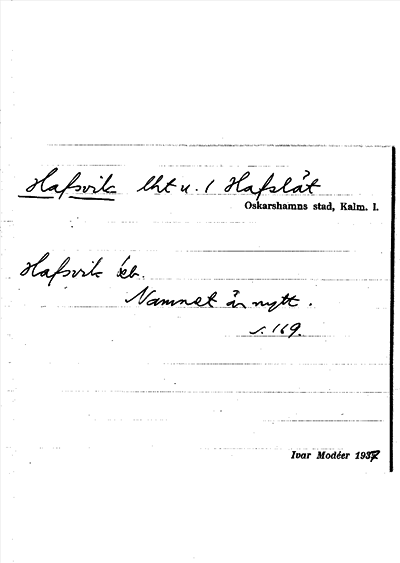 Hafsvik lht u. 1 Hafslåt
Oskarshamns stad, Kalm. l.
Hafsvik ek.
Namnet är nytt.
s. 169.
Ivar Modéer 1937